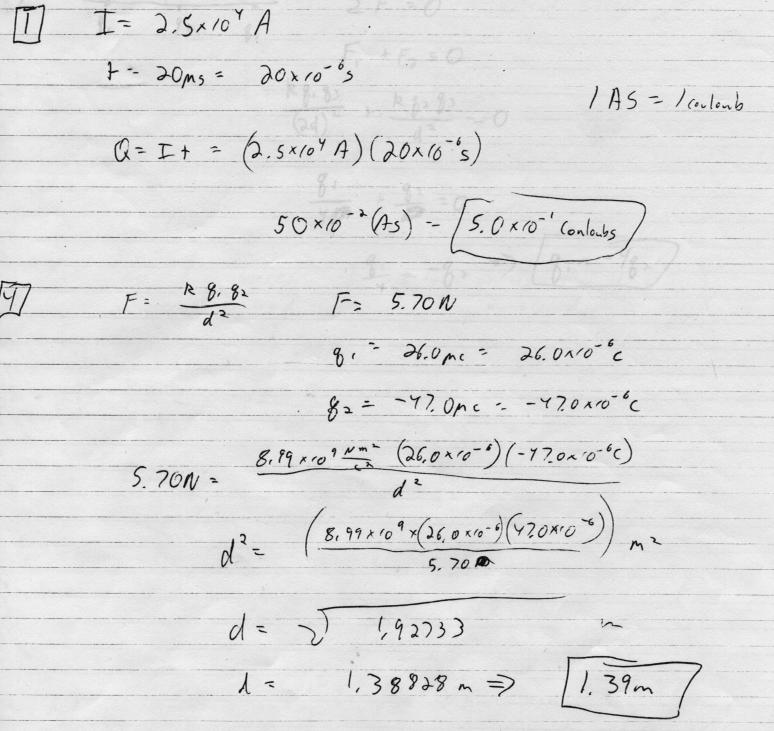 1 I = 2.5×10⁴ A
t = 20μs = 20×10⁻⁶s
1 AS = 1 coulomb
Q = It = (2.5×10⁴ A)(20×10⁻⁶s)
50×10⁻²(As) = 5.0×10⁻¹ Conloubs
4 F = k q₁ q₂ / d² F = 5.70N
q₁ = 26.0μc = 26.0×10⁻⁶c
q₂ = -47.0μc = -47.0×10⁻⁶C
5.70N = 8.99×10⁹ Nm²/c² (26.0×10⁻⁶)(-47.0×10⁻⁶C) / d²
d² = (8.99×10⁹×(26.0×10⁻⁶)(47.0×10⁻⁶) / 5.70) m²
d = √1.92733 m
d = 1.38828 m ⇒ 1.39m